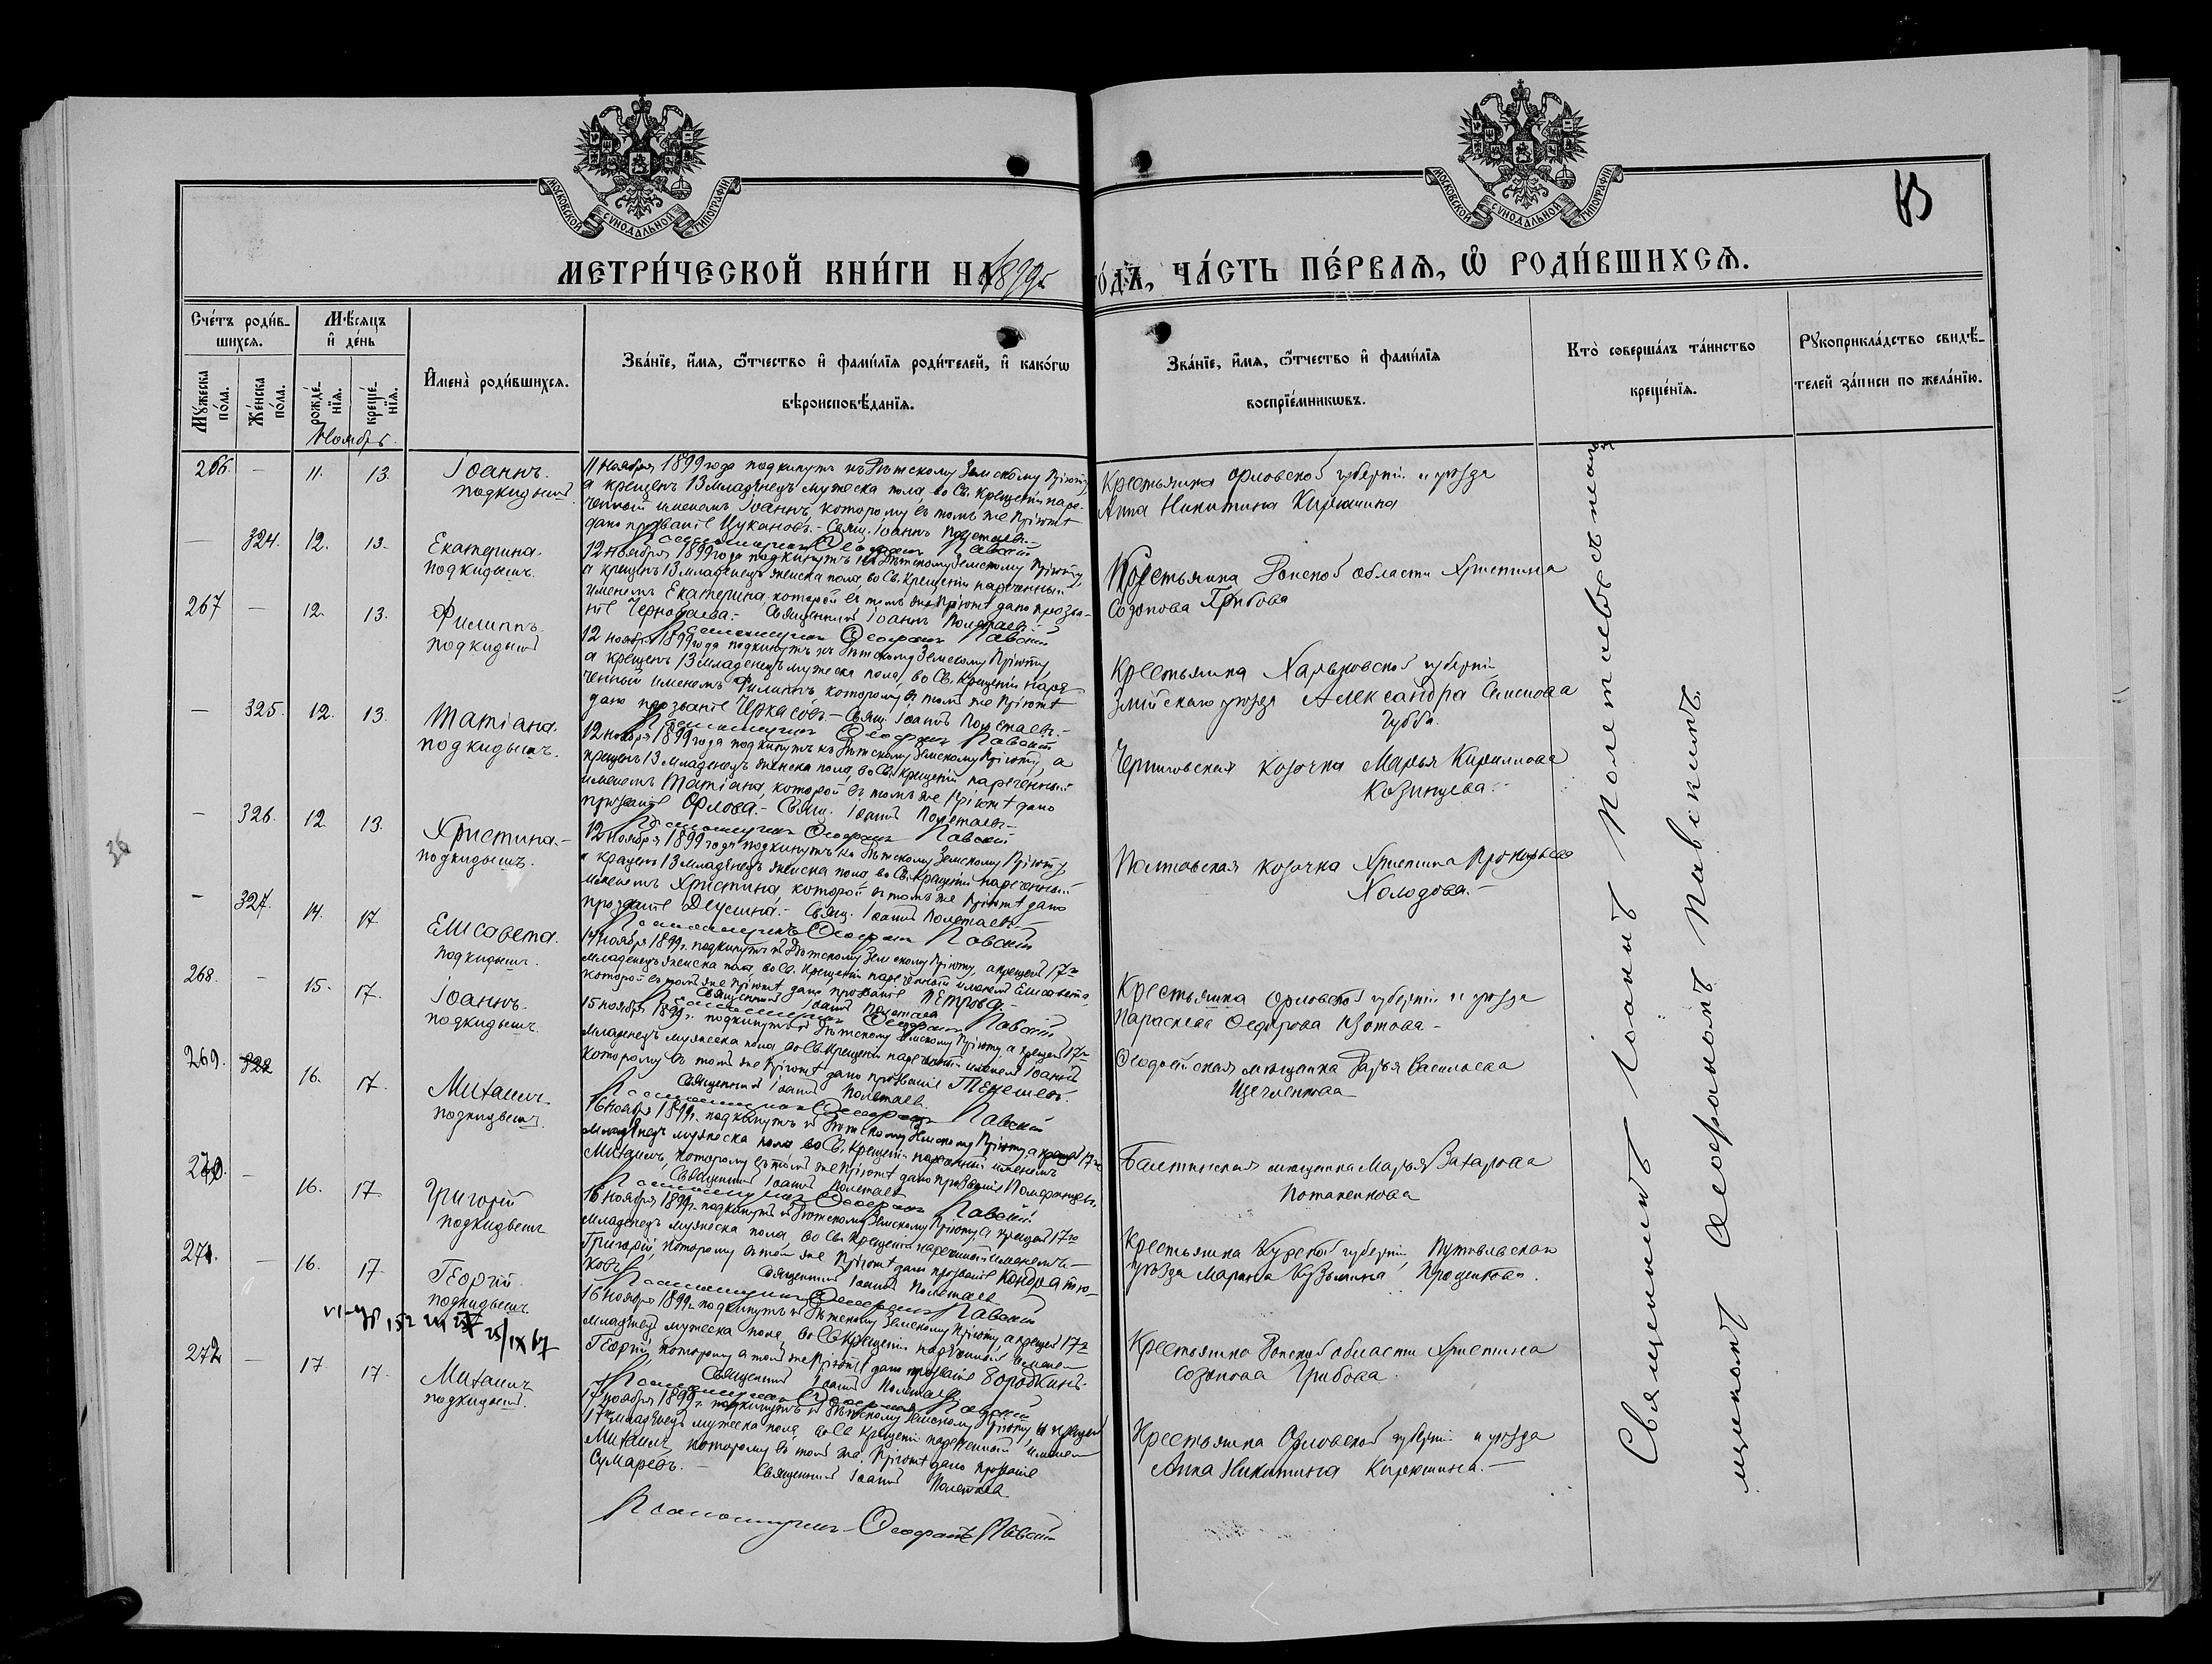 МОСКОВСКОЙ СѴНОДАЛЬНОЙ ТИПОГРАФІИ.
МОСКОВСКОЙ СѴНОДАЛЬНОЙ ТИПОГРАФІИ.
МЕТРИ́ЧЕСКОЙ КНИ́ГИ НА 1899 г. ГО́ДЪ, ЧА́СТЬ ПЕ́РВАѦ, Ѽ РОДИ́ВШИХСѦ.
Сче́тъ роди́в-
шихсѧ.
Мѣ́сѧцъ
и҆ де́нь
Мꙋ́жеска
по́ла.
Же́нска
по́ла.
рожде́-
нїѧ.
креще́-
нїѧ.
И҆мена̀ роди́вшихсѧ.
Зва́нїе, и҆́мѧ, ѻ҆́тчество и҆ фами́лїѧ роди́телей, и҆ како́гѡ
вѣроисповѣ́данїѧ.
Зва́нїе, и҆́мѧ, ѻ҆́тчество и҆ фами́лїѧ
воспрїе́мникѡвъ.
Кто̀ соверша́лъ та́инство
креще́нїѧ.
Рꙋкоприкла́дство свидѣ́-
телей за́писи по жела́нїю.
Ноябрь.
266. — 11. 13. Іоаннъ.
подкидышъ
11 Ноября 1899 года подкинутъ къ Дѣтскому Земскому Пріюту,
а крещенъ 13 Младенецъ мужеска пола, во Св. Крещеніи наре-
ченный именемъ Іоаннъ, которому въ томъ же Пріютѣ
дано прозваніе Цукановъ. - Свящ. Іоаннъ Полетаевъ. -
Псаломщикъ Ѳеофанъ Павскій
Крестьянка Орловской губерніи и уѣзда
Анна Никитина Кирюшина
— 324. 12. 13. Екатерина.
подкидышъ.
12 Ноября 1899 года подкинутъ къ Дѣтскому Земскому Пріюту,
а крещенъ 13 Младенецъ женска пола во Св. Крещеніи нареченный
именемъ Екатерина, которой въ томъ же Пріютѣ дано прозва-
ніе Чернобаева. - Священникъ Іоаннъ Полетаевъ.
Псаломщикъ Ѳеофанъ Павскій
Крестьянка Донской области Христина
Созонова Грибова
267 — 12. 13. Филиппъ.
подкидышъ
12 Ноября 1899 года подкинутъ къ Дѣтскому Земскому Пріюту,
а крещенъ 13 Младенецъ мужеска пола, во Св. Крещеніи наре-
ченный именемъ Филиппъ, которому въ томъ же Пріютѣ
дано прозваніе Черкасовъ. - Свящ. Іоаннъ Полетаевъ. -
Псаломщикъ Ѳеофанъ Павскій
Крестьянка Харьковской губерніи
Змійскаго уѣзда Александра Семенова
Губба.
— 325. 12. 13. Татіана.
подкидышъ.
12 ноября 1899 года подкинутъ къ Дѣтскому Земскому Пріюту, а
крещенъ 13 Младенецъ женска пола, во Св. Крещеніи нареченный
именемъ Татіана, которой въ томъ же Пріютѣ дано
прозваніе Орлова. - Свящ. Іоаннъ Полетаевъ. -
Псаломщикъ Ѳеофанъ Павскій
Черниговская козачка Марья Кириллова
Казинцева. -
— 326. 12. 13. Христина. -
подкидышъ.
12 Ноября 1899 года подкинутъ къ Дѣтскому Земскому Пріюту,
а крещенъ 13 Младенецъ женска пола во Св. Крещеніи нареченный
именемъ Христина, которой въ томъ же Пріютѣ дано
прозваніе - Свящ. Іоаннъ Полетаевъ. -
Псаломщикъ Ѳеофанъ Павскій
Полтавская козачка Христина
Холодова. -
— 327. 14. 17. Елисавета.
подкидышъ.
14 Ноября 1899 г. подкинутъ къ Дѣтскому Земскому Пріюту, а крещенъ 17го
Младенецъ женска пола во Св. Крещеніи нареченный именемъ Елисавета,
которой въ томъ же Пріютѣ дано прозваніе Петрова. -
Священникъ Іоаннъ Полетаевъ
Псаломщикъ Ѳеофанъ Павскій
Крестьянка Орловской губерніи и уѣзда
Параскева Ѳедорова Изотова -
268. — 15. 17. Іоаннъ.
подкидышъ.
15 ноября 1899 г. подкинутъ къ Дѣтскому Земскому Пріюту, а крещенъ 17го
Младенецъ мужеска пола во Св. Крещеніи нареченный именемъ Іоаннъ
которому въ томъ же Пріютѣ дано прозваніе
Священникъ Іоаннъ Полетаевъ.
Псаломщикъ Ѳеофанъ Павскій
Ѳеодосійская мѣщанка Дарья Васильева
269. 328 16. 17. Михаилъ
подкидышъ
16 Ноября 1899 г. подкинутъ къ Дѣтскому Земскому Пріюту, а крещенъ 17го
Младенецъ мужеска пола во Св. Крещеніи нареченный именемъ
Михаилъ, которому въ томъ же Пріютѣ дано прозваніе Померанцевъ,
Священникъ Іоаннъ Полетаевъ
Псаломщикъ Ѳеофанъ Павскій
Балтинская мѣщанка Марья Захарова
Потапенкова
270. — 16. 17 Григорій
подкидышъ
16 Ноября 1899 г. подкинутъ къ Дѣтскому Земскому Пріюту, а крещенъ 17го
Младенецъ мужеска пола, во Св. Крещеніи нареченный именемъ -
Григорій, которому въ томъ же Пріютѣ дано прозваніе Кондратю-
ковъ Священникъ Іоаннъ Полетаевъ
Псаломщикъ Ѳеофанъ Павскій
Крестьянка Курской губерніи, Путивльскаго
уѣзда Марина Кузьмина Проценкова.
271. — 16. 17. Георгій.
подкидышъ
16 Ноября 1899 г. подкинутъ къ Дѣтскому Земскому Пріюту, а крещенъ 17го
Младенецъ мужеска пола, во Св. Крещеніи нареченный именемъ
Георгій, которому въ томъ же Пріютѣ дано прозваніе Бородкинъ.
Священникъ Іоаннъ Полетаевъ
Псаломщикъ Ѳеофанъ Павскій
Крестьянка Донской области Христина
Созонова Грибова
272 — 17. 17. Михаилъ
подкидышъ.
17 ноября 1899 г. подкинутъ къ Дѣтскому Земскому Пріюту, а крещенъ
17го Младенецъ мужеска пола, во Св. Крещеніи нареченный именемъ
Михаилъ, которому въ томъ же Пріютѣ дано прозваніе
Сумаревъ. - Священникъ Іоаннъ
Полетаевъ
Псаломщикъ Ѳеофанъ Павскій
Крестьянка Орловской губерніи и уѣзда
Анна Никитина Кирюшина. -
Священникъ Іоаннъ Полетаевъ съ псало-
мщикомъ Ѳеофаномъ Павскимъ
36